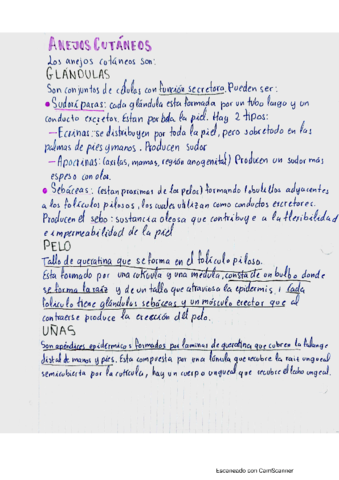 ANEJOS CUTÁNEOS
Los anejos cutáneos son:
GLÁNDULAS
Son conjuntos de células con función secretora. Pueden ser:
• Sudoríparas: cada glándula esta formada por un tubo largo y un
conducto excretor. Estan por toda la piel. Hay 2 tipos:
— Ecrinas: se distribuyen por toda la piel, pero sobretodo en las
palmas de pies y manos. Producen sudor
— Apocrinas: (axilas, mamas, región anogenital) Producen un sudor más
espeso con olor.
• Sebáceas: (estan proximas de los pelos) formando lobulillos adyacentes
a los folículos pilosos, los cuales utilizan como conductos excretores.
Producen el sebo: sustancia oleosa que contribuye a la flexibilidad
e impermeabilidad de la piel
PELO
Tallo de queratina que se forma en el folículo piloso.
Esta formado por una cutícula y una médula, consta de un bulbo donde
se forma la raíz y de un tallo que atraviesa la epidermis, i cada
folículo tiene glándulas sebáceas y un músculo erector que al
contraerse produce la erección del pelo.
UÑAS
Son apéndices epidermicos formados por laminas de queratina que cubren la falange
distal de manos y pies. Esta compuesta por una lúnula que recubre la raiz ungueal
semicubierta por la cutícula, hay un cuerpo ungueal que recubre el lecho ungeal.
Escaneado con CamScanner